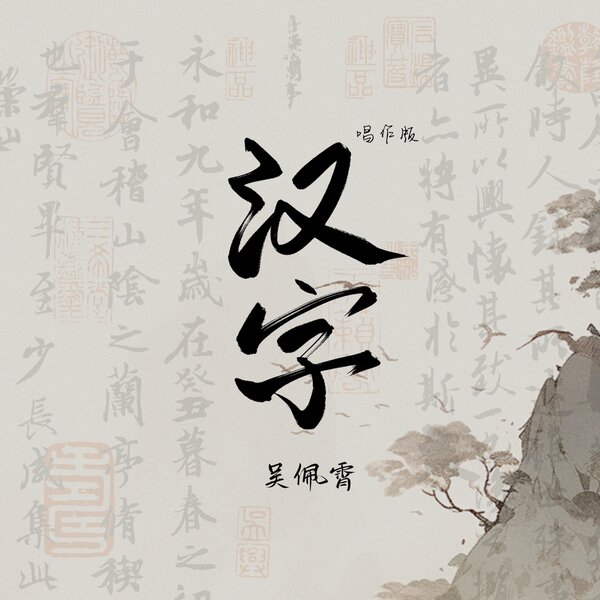 汉字
唱作版
吴佩霄
永和九年歲在癸丑暮春之初
于會稽山陰之蘭亭脩禊
也羣賢畢至少長咸集此
崇山
敘時人錄其所
異所以興懷其致一
者亦將有感於斯